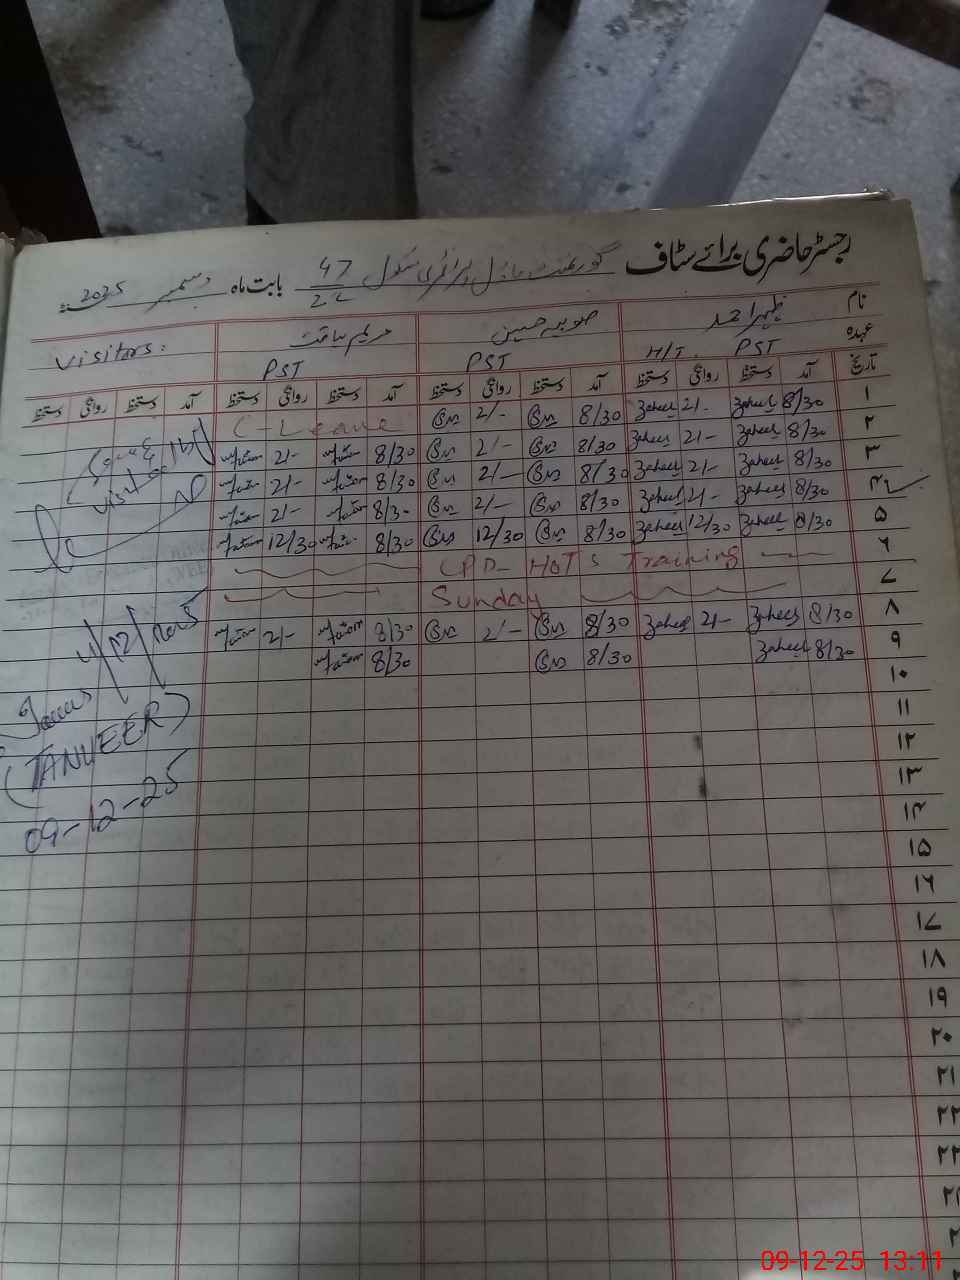 رجسٹر حاضری برائے سٹاف گورنمنٹ ماڈل پرائمری سکول 47 بابت ماہ دسمبر 2025
نام ظہیر احمد صوبیہ حسین مریم لیاقت Visitors:
عہدہ H/T. PST PST PST
تاریخ آمد دستخط روانگی دستخط آمد دستخط روانگی دستخط آمد دستخط روانگی دستخط آمد دستخط روانگی دستخط
۱ 8/30 Zaheer 2/- Zaheer 8/30 2/- C-Leave
۲ 8/30 Zaheer 2/- Zaheer 8/30 2/- 8/30 2/-
۳ 8/30 Zaheer 2/- Zaheer 8/30 2/- 8/30 2/-
۴ 8/30 Zaheer 2/- Zaheer 8/30 2/- 8/30 2/-
۵ 8/30 Zaheer 12/30 Zaheer 8/30 12/30 8/30 12/30
۶ CPD- HOTS Training
۷ Sunday
۸ 8/30 Zaheer 2/- Zaheer 8/30 2/- 8/30 2/-
۹ 8/30 Zaheer 8/30 8/30
۱۰
۱۱
۱۲
۱۳
۱۴
۱۵
۱۶
۱۷
۱۸
۱۹
۲۰
۲۱
۲۲
۲۳
visit
4/12/2025
(TANVEER)
09-12-25
09-12-25 13:11